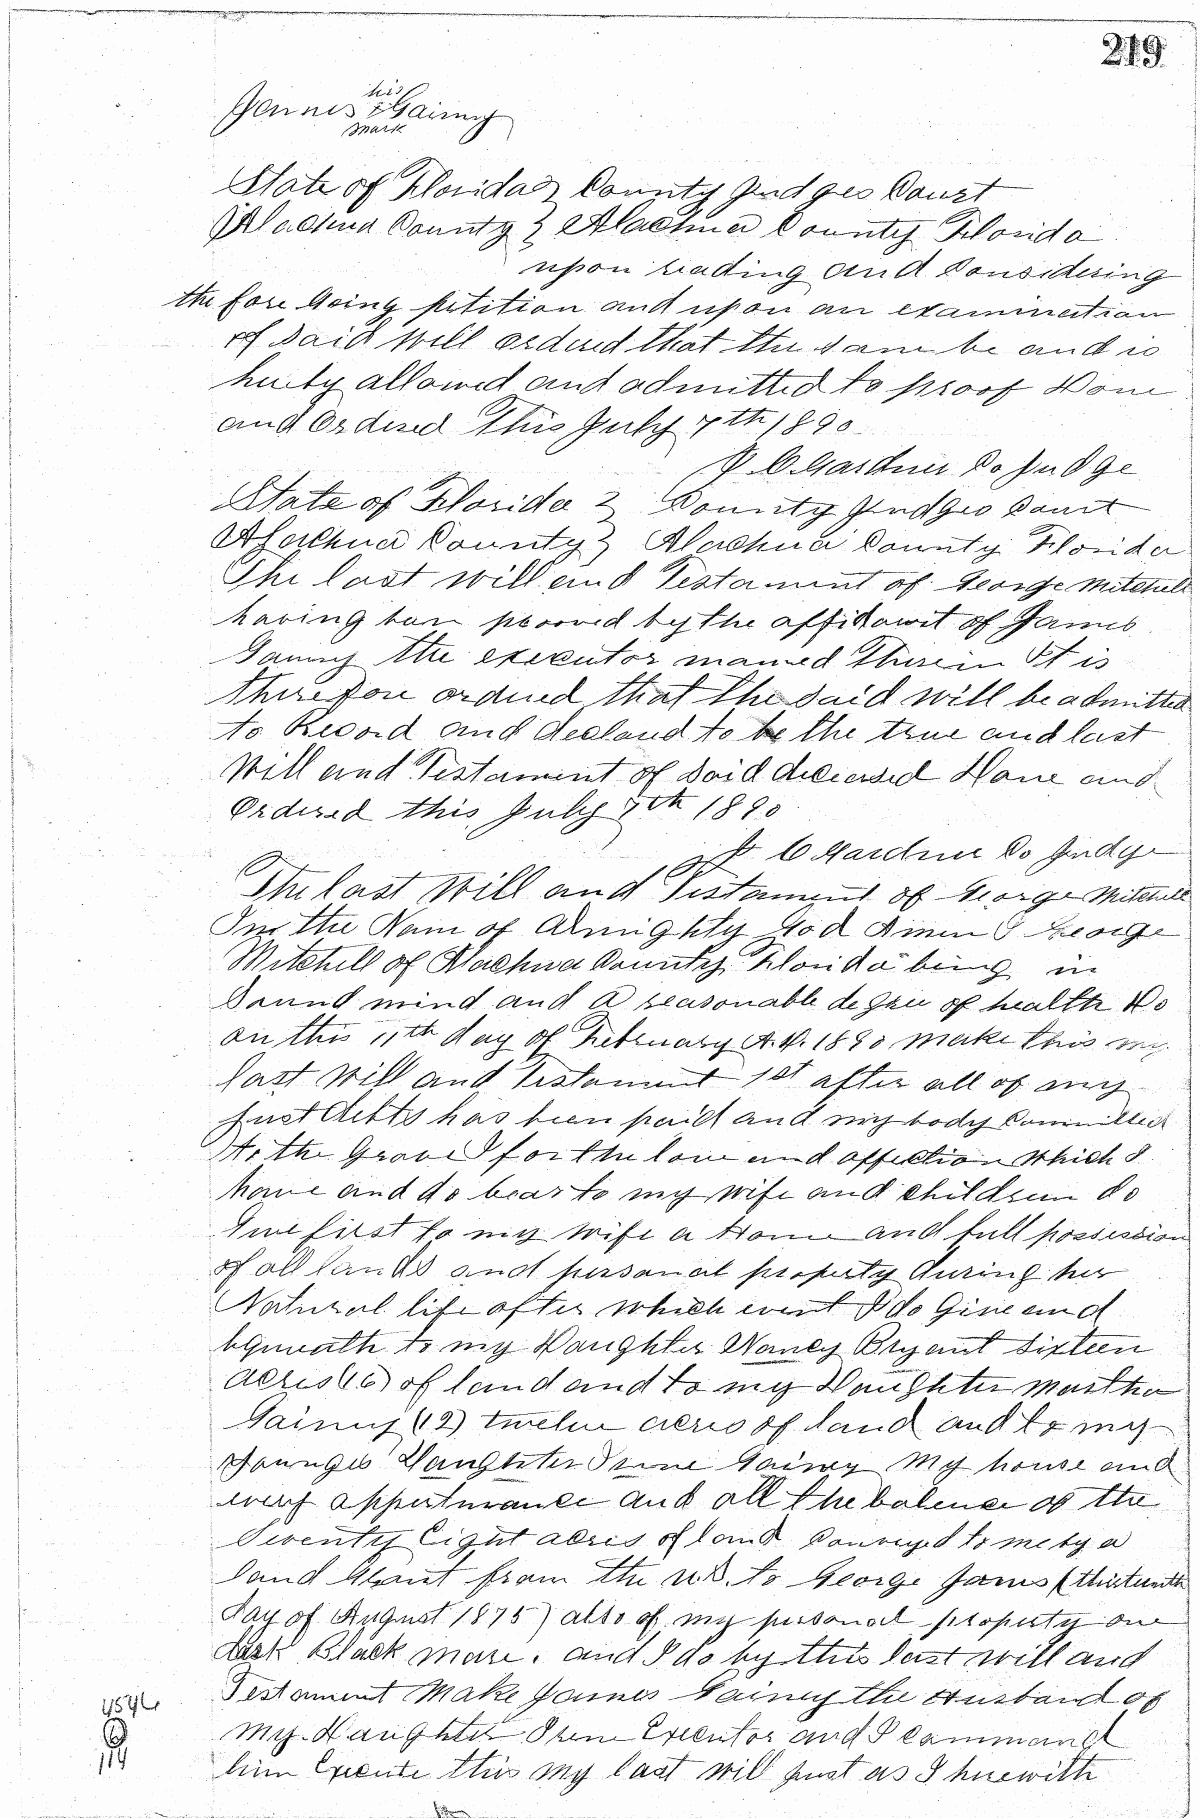 219
his
James x Gainey
mark
State of Florida } County Judges Court
Alachua County } Alachua County Florida
upon reading and Considering
the fore Going petition and upon an examination
of Said Will ordered that the same be and is
hereby allowed and admitted to proof Done
and Ordered This July 7th 1890
J C Gardner Co Judge
State of Florida } County Judges Court
Alachua County } Alachua County Florida
The last will and Testament of George Mitchell
having been prooved by the affidavit of James
Gainey the executor named Therein It is
therefore ordered that the said will be admitted
to Record and declared to be the true and last
Will and Testament of said deceased Done and
Ordered this July 7th 1890
J C Gardner Co Judge
The last Will and Testament of George Mitchell
In the Name of Almighty God Amen I George
Mitchell of Alachua County Florida being in
Sound mind and a reasonable degree of health Do
on this 11th day of February A.D. 1890 make this my
last Will and Testament 1st after all of my
just debts has been paid and my body Committed
to the Grave I for the love and affection which I
have and do bear to my wife and children do
Give first to my wife a Home and full possession
of all lands and personal property during her
Natural life after which event I do Give and
bequeath to my Daughter Nancy Bryant Sixteen
acres (16) of land and to my Daughter Martha
Gainey (12) twelve acres of land and to my
Younges Daughter Irene Gainey My house and
every appurtenance and all the balence of the
Seventy Eight acres of land Conveyed to me by a
land Grant from the U.S. to George James (thirteenth
day of August 1875) also of my personal property one
dark Black mare. and I do by this last will and
Testament Make James Gainey the Husband of
My Daughter Irene Executor and I command
him Execute this my last will just as I herewith
4546
114